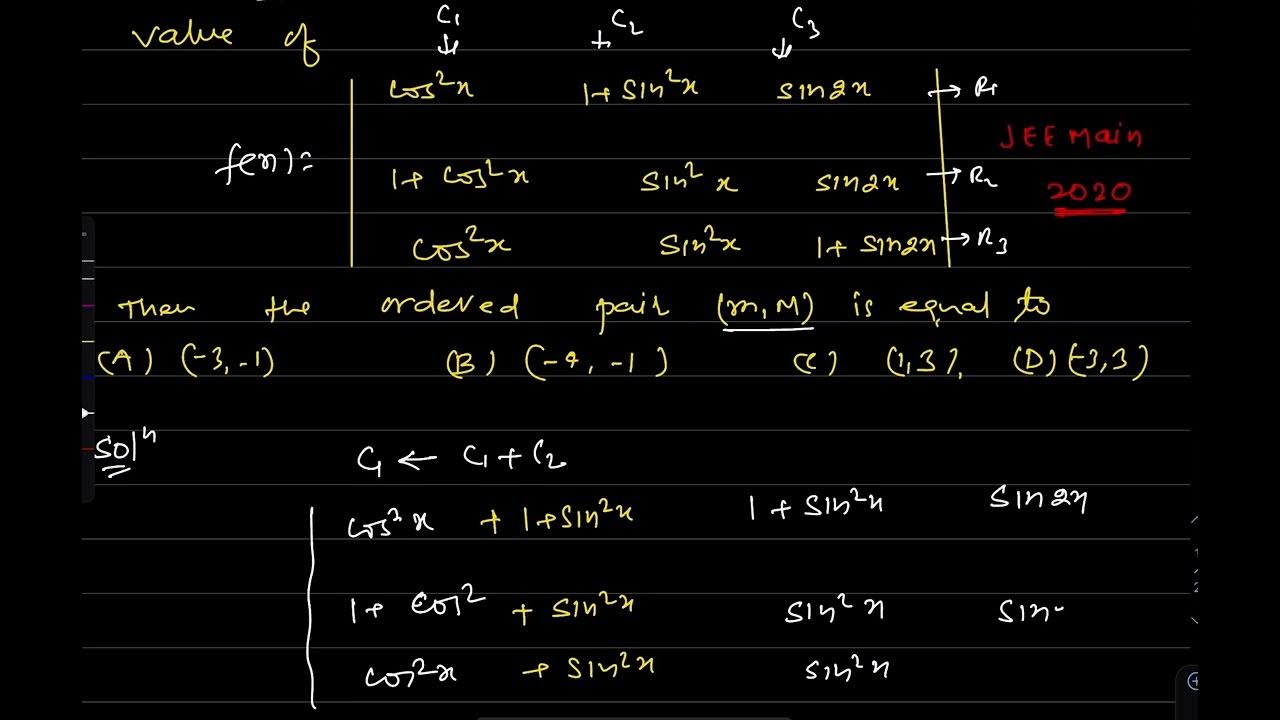 value of C₁ C₂ C₃
cos²x 1+ sin²x sin2x → R₁
f(x)= 1+ cos²x sin²x sin2x → R₂
cos²x sin²x 1+ sin2x → R₃
JEE Main
2020
Then the ordered pair (m,M) is equal to
(A) (-3,-1) (B) (-4,-1) (C) (1,3), (D) (-3,3)
Solⁿ C₁ ← C₁ + C₂
cos²x + 1+sin²x 1+ sin²x sin2x
1+ cos² + sin²x sin²x sin
cos²x + sin²x sin²x